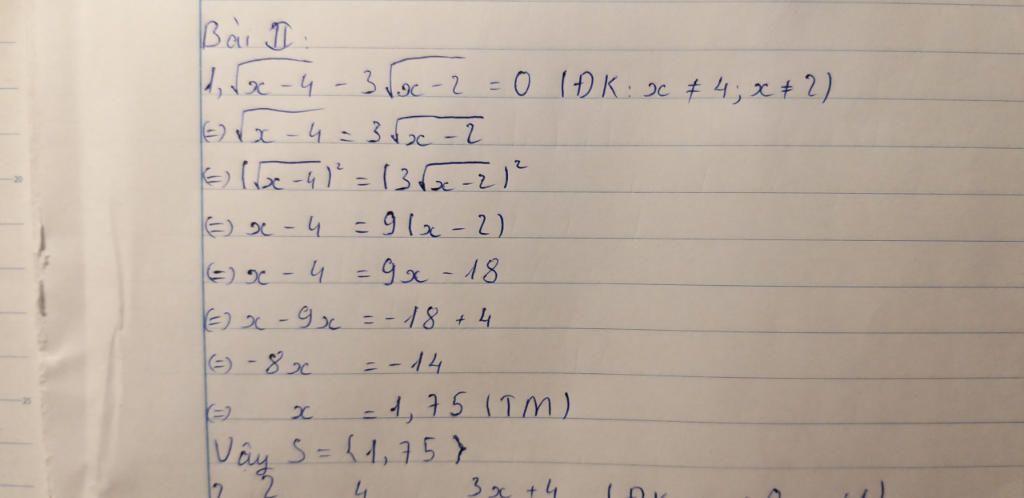 Bài II:
1, √(x - 4) - 3√(x - 2) = 0 (ĐK: x ≠ 4; x ≠ 2)
(=) √(x - 4) = 3√(x - 2)
(=) (√(x - 4))² = (3√(x - 2))²
(=) x - 4 = 9(x - 2)
(=) x - 4 = 9x - 18
(=) x - 9x = -18 + 4
(=) - 8x = - 14
(=) x = 1,75 (TM)
Vây S = {1,75}
2 2 4 3x + 4 (ĐK